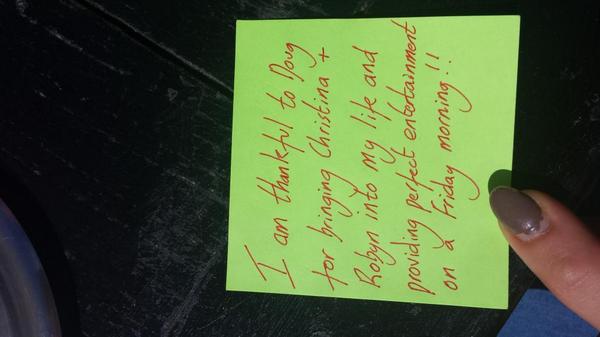 I am thankful to Doug
for bringing Christina +
Robyn into my life and
providing perfect entertainment
on a Friday morning!!